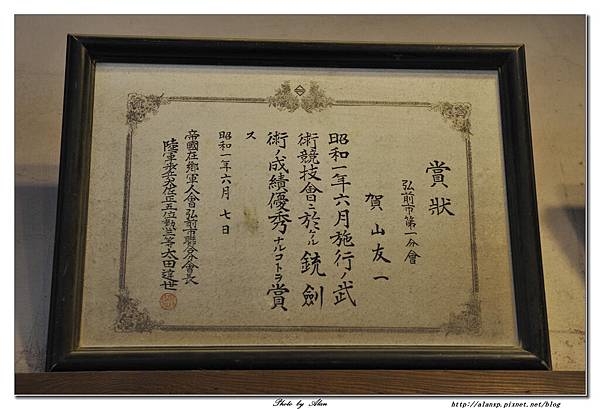 賞狀
弘前市第一分會
賀山友一
昭和一年六月施行ノ武
術競技會ニ於ケル銃劍
術ノ成績優秀ナルコトヲ賞
ス
昭和一年六月七日
帝國在鄉軍人會弘前市聯合分會長
陸軍 正五位勲三等太田達世
Photo by Alan
http://alansp.pixnet.net/blog